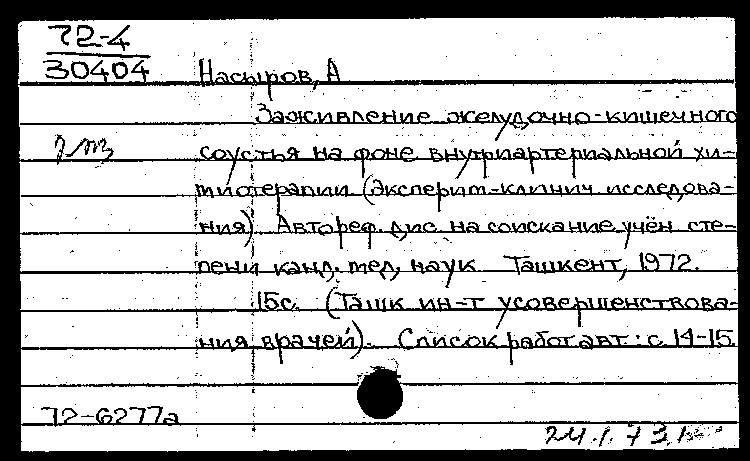 72-4
30404
Насыров, А
Заживление желудочно-кишечного
соустья на фоне внутриартериальной хи-
миотерапии (Эксперит-клинич исследова-
ния). Автореф. дис. на соискание учён сте-
пени канд. мед. наук Ташкент, 1972.
15с. (Ташк ин-т усовершенствова-
ния врачей). Список работ авт: с. 14-15.
72-6277а
24.1.73